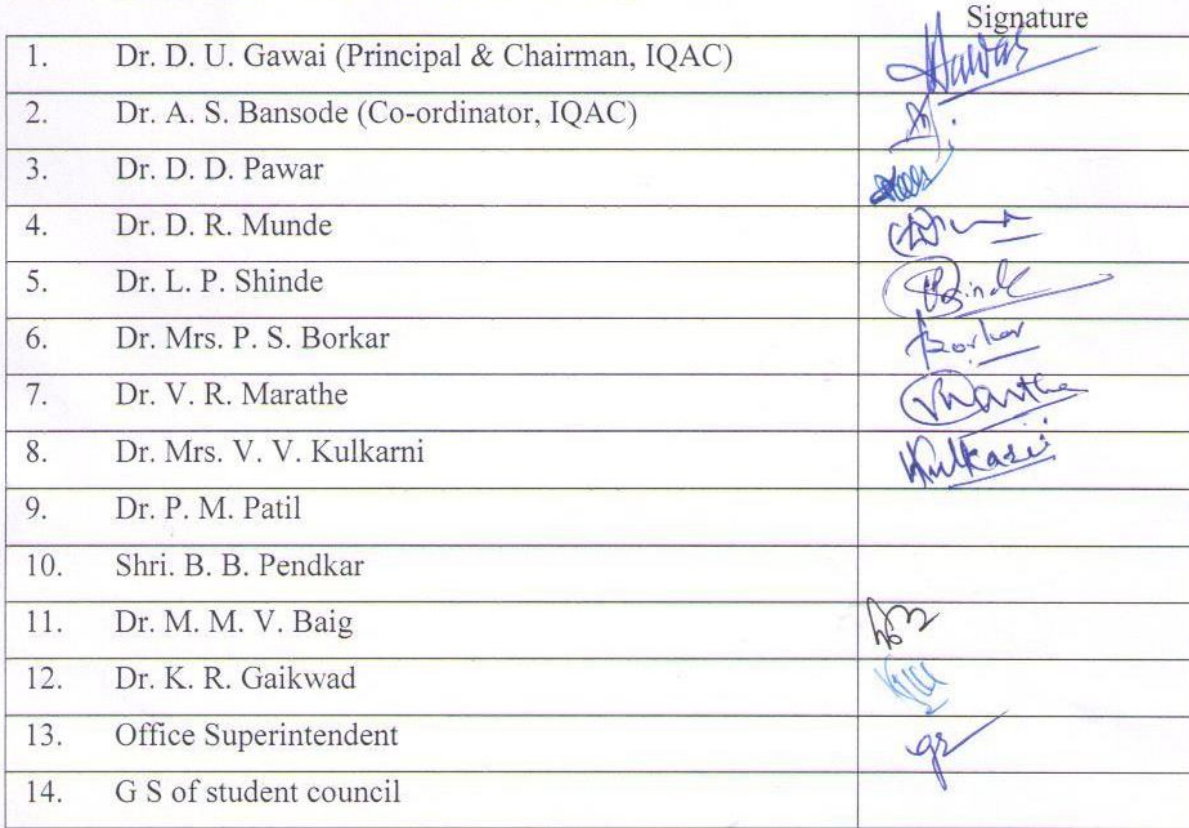 Signature
1. Dr. D. U. Gawai (Principal & Chairman, IQAC) Hawas
2. Dr. A. S. Bansode (Co-ordinator, IQAC)
3. Dr. D. D. Pawar
4. Dr. D. R. Munde
5. Dr. L. P. Shinde
6. Dr. Mrs. P. S. Borkar Borkar
7. Dr. V. R. Marathe
8. Dr. Mrs. V. V. Kulkarni Kulkarni
9. Dr. P. M. Patil
10. Shri. B. B. Pendkar
11. Dr. M. M. V. Baig
12. Dr. K. R. Gaikwad
13. Office Superintendent
14. G S of student council